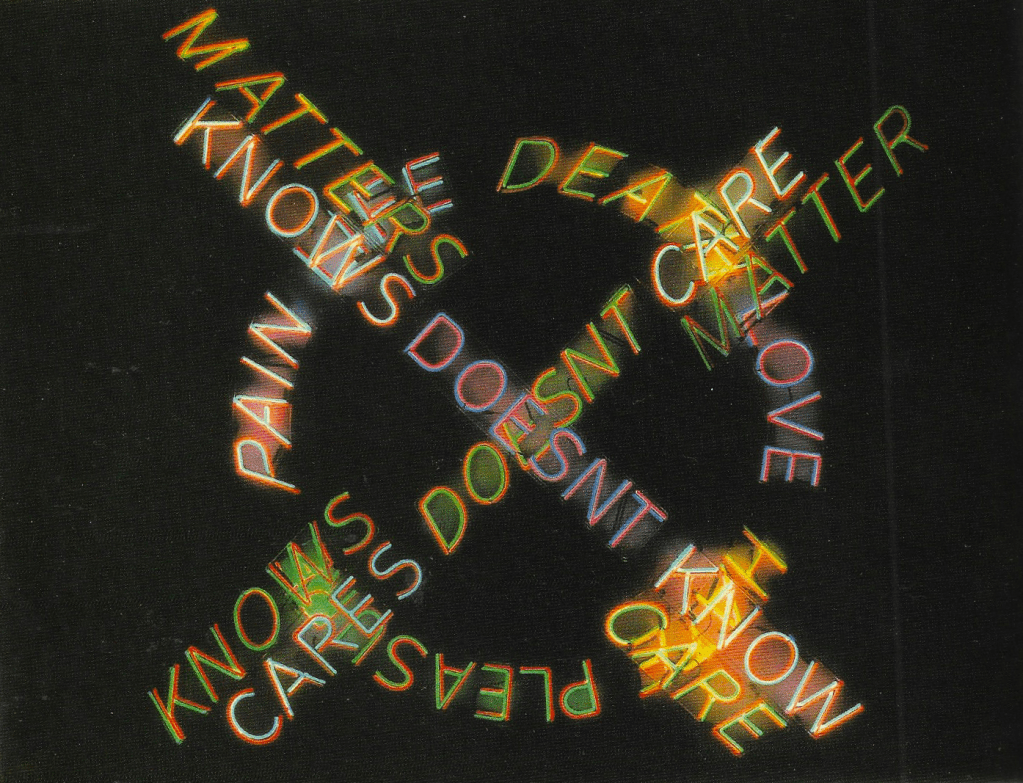 MATTERS
KNOWS
LIFE
DEATH
CARE
MATTER
PAIN
LOVE
DOESNT
DOESNT
KNOWS
CARES
PLEASURE
HATE
KNOW
CARE